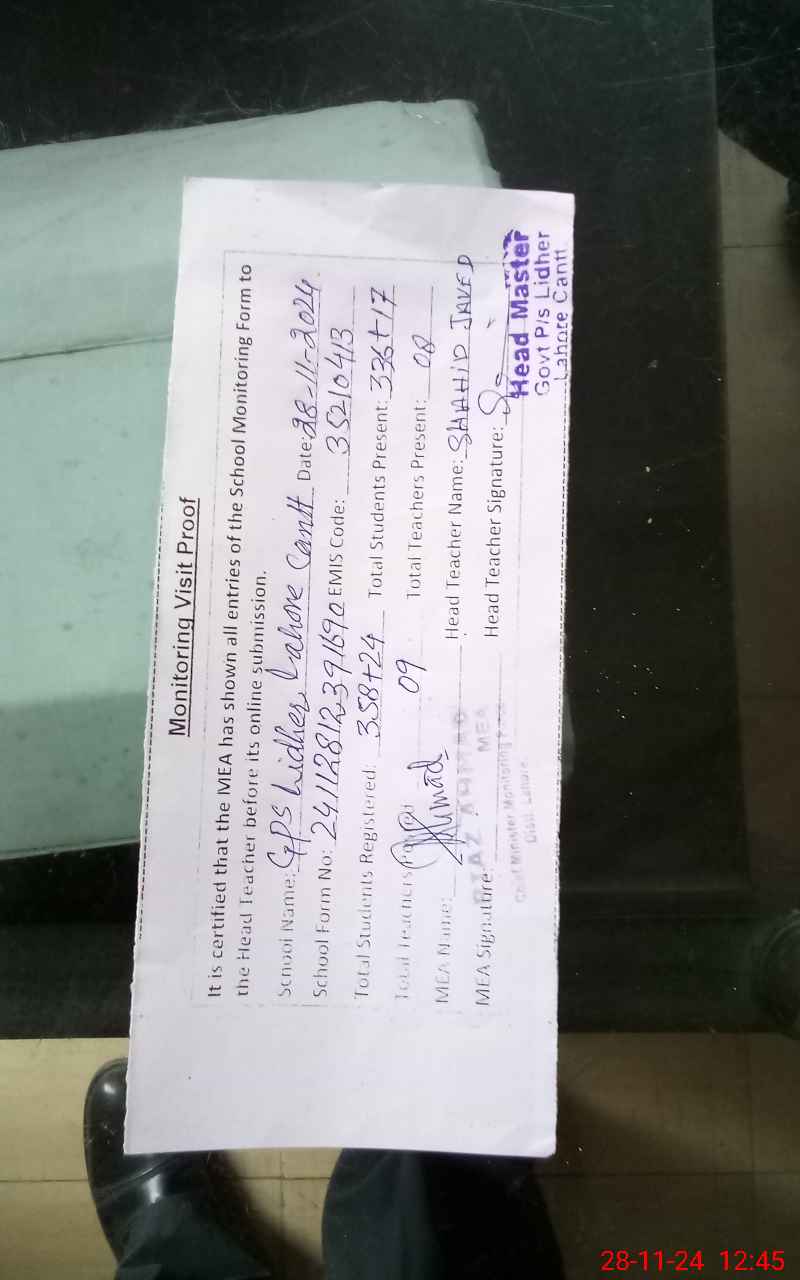 Monitoring Visit Proof
It is certified that the MEA has shown all entries of the School Monitoring Form to
the Head Teacher before its online submission.
School Name: GPS Lidher Lahore Cantt Date: 28-11-2024
School Form No: 24112812391690 EMIS Code: 35210413
Total Students Registered: 358+24 Total Students Present: 336+17
Total Teachers 09 Total Teachers Present: 08
MEA Name: Ahmad Head Teacher Name: SHAHID JAVED
MEA Signature: Head Teacher Signature:
RIAZ AHMAD
MEA
Chief Minister Monitoring
Distt. Lahore.
Head Master
Govt P/s Lidher
Lahore Cantt
28-11-24 12:45